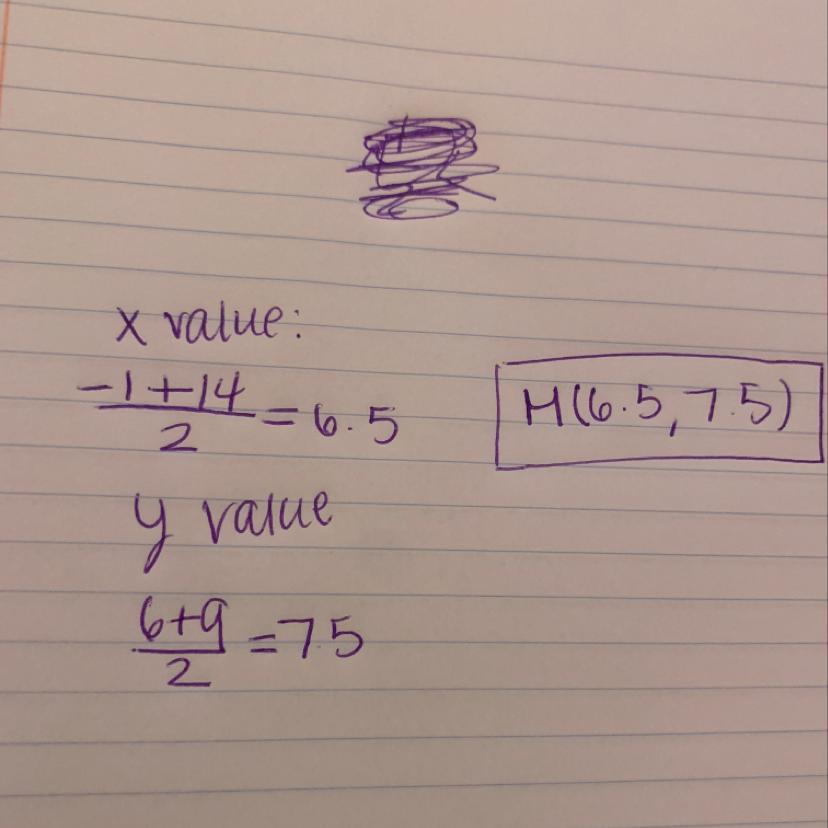 x value:
-1+14
2
=6.5
M(6.5, 7.5)
y value
6+9
2
=7.5